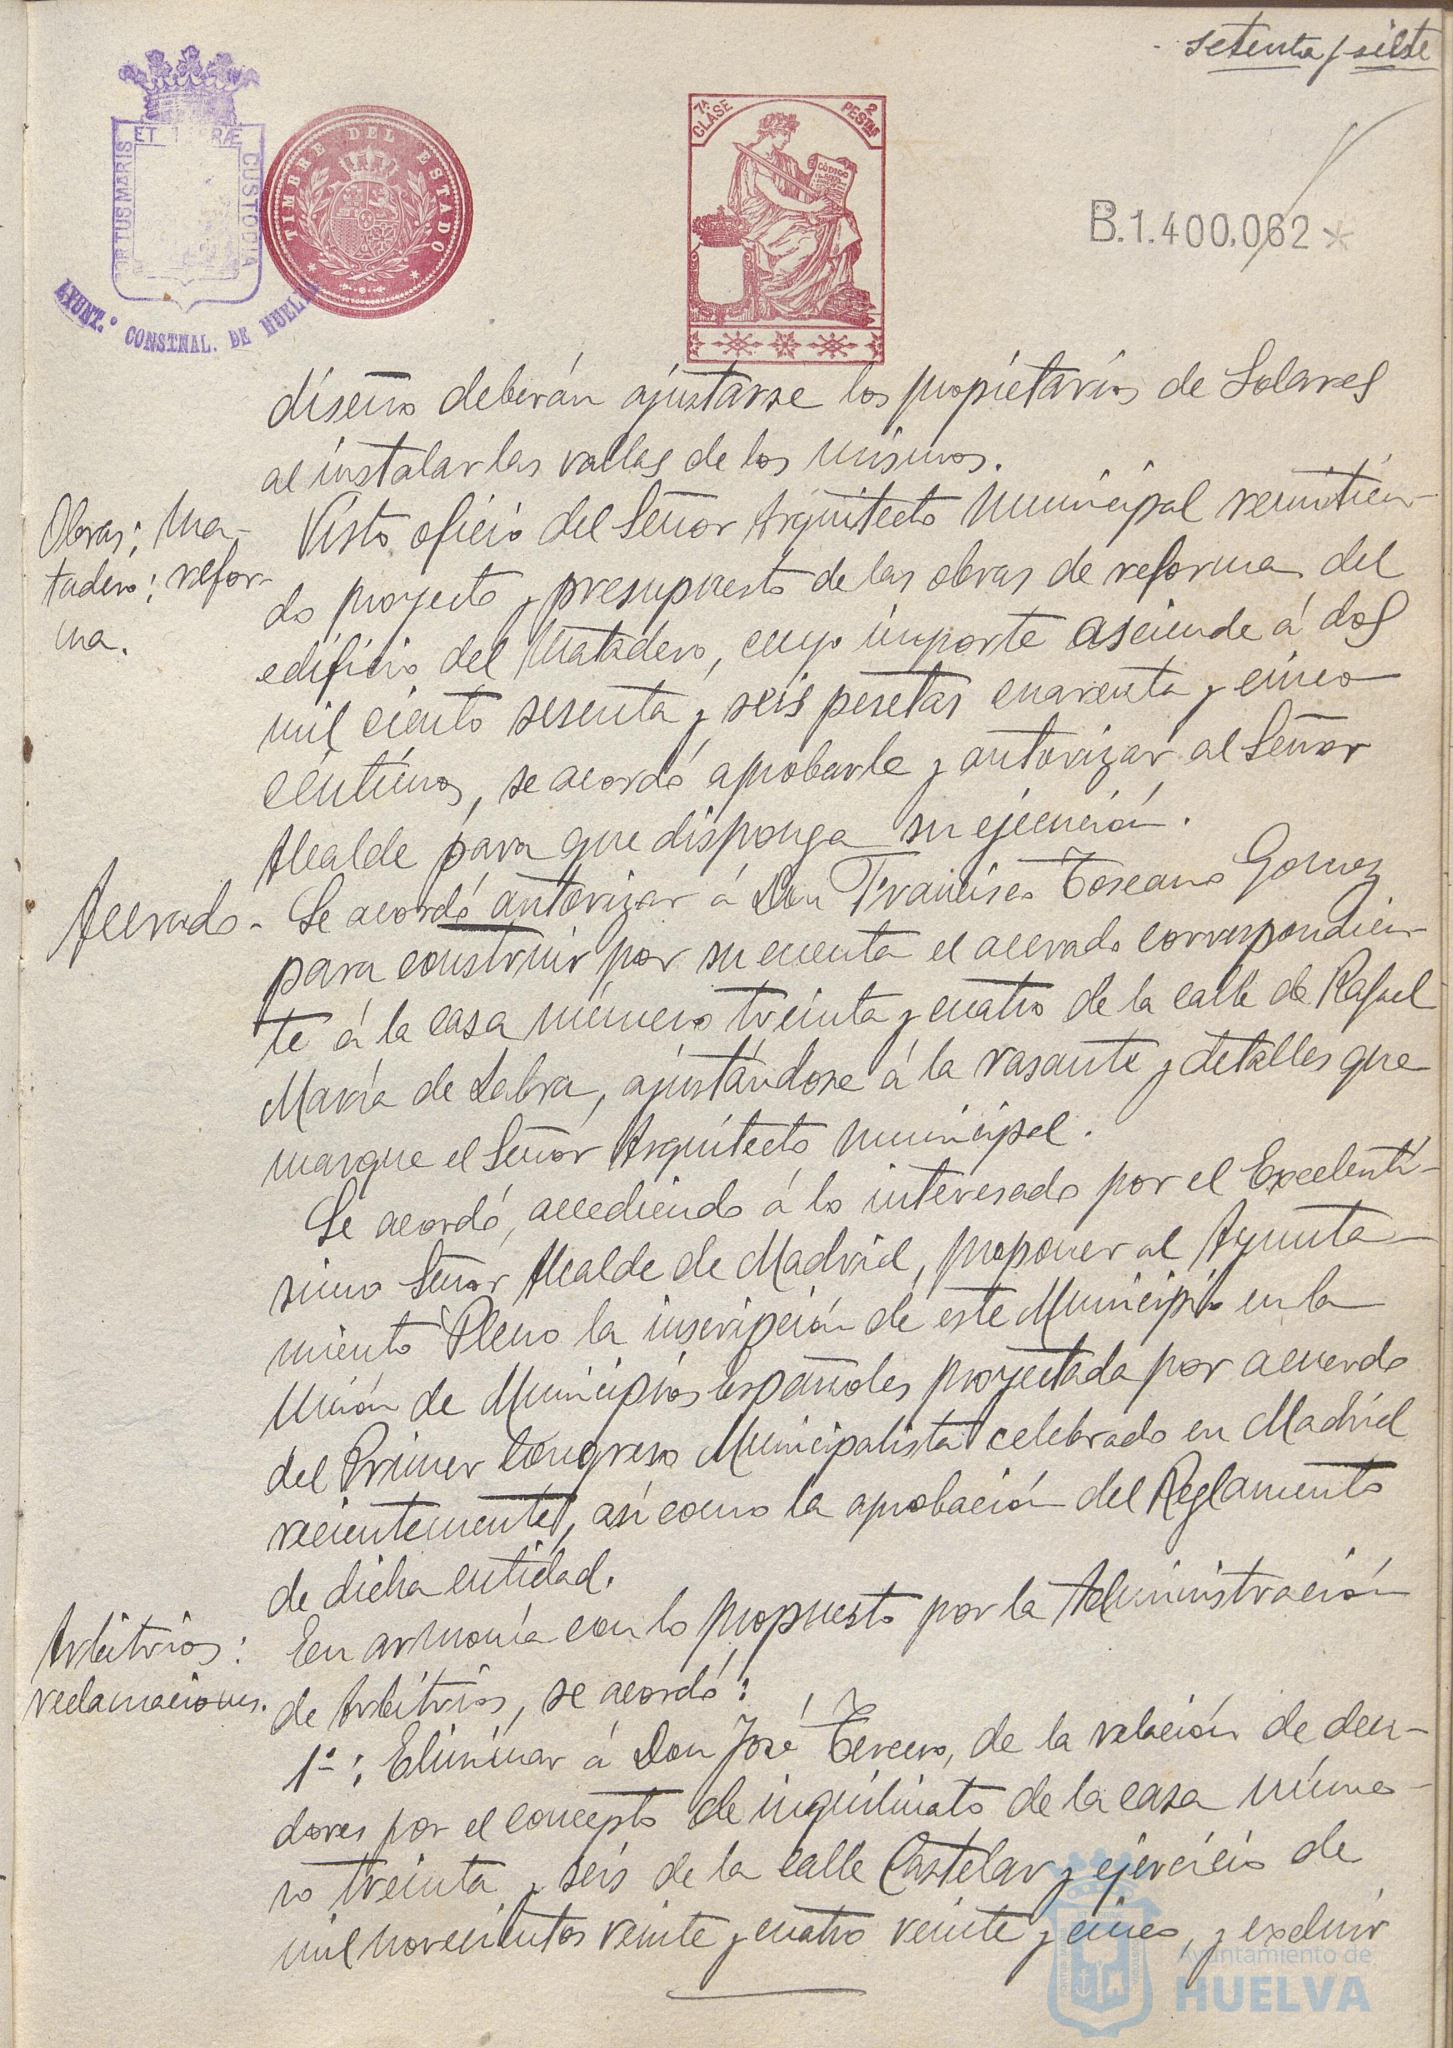 setenta y siete
PORTUS MARIS ET TERRÆ CUSTODIA
AYUNT.º CONSTNAL. DE HUELVA
TIMBRE DEL ESTADO
7ª CLASE
2 PESTAS
CODIGO
B.1.400,062 *
diseño deberán ajustarse los propietarios de Solares
al instalar las vallas de los mismos.
Obras; Ma-
tadero; refor-
ma.
Visto oficio del Señor Arquitecto Municipal remitien-
do proyecto y presupuesto de las obras de reforma del
edificio del Matadero, cuyo importe asciende á dos
mil ciento sesenta y seis pesetas cuarenta y cinco
céntimos, se acordó aprobarle y autorizar al Señor
Alcalde para que disponga su ejecución.
Acerado-
Se acordó autorizar á Don Francisco Toscano Gomez
para construir por su cuenta el acerado correspondien-
te á la casa número treinta y cuatro de la calle de Rafael
María de Labra, ajustándose á la rasante y detalles que
marque el Señor Arquitecto Municipal.
Se acordó, accediendo á lo interesado por el Excelentí-
simo Señor Alcalde de Madrid, proponer al Ayunta-
miento Pleno la inscripción de este Municipio en la
Unión de Municipios Españoles proyectada por acuerdo
del Primer Congreso Municipalista celebrado en Madrid
recientemente, así como la aprobación del Reglamento
de dicha entidad.
Arbitrios:
reclamaciones.
En armonía con lo propuesto por la Administración
de Arbitrios, se acordó:
1º; Eliminar á Don José Tercero, de la relación de deu-
dores por el concepto de inquilinato de la casa núme-
ro treinta y seis de la calle Castelar y ejercicio de
mil novecientos veinte y cuatro veinte y cinco, y excluir
Ayuntamiento de
HUELVA